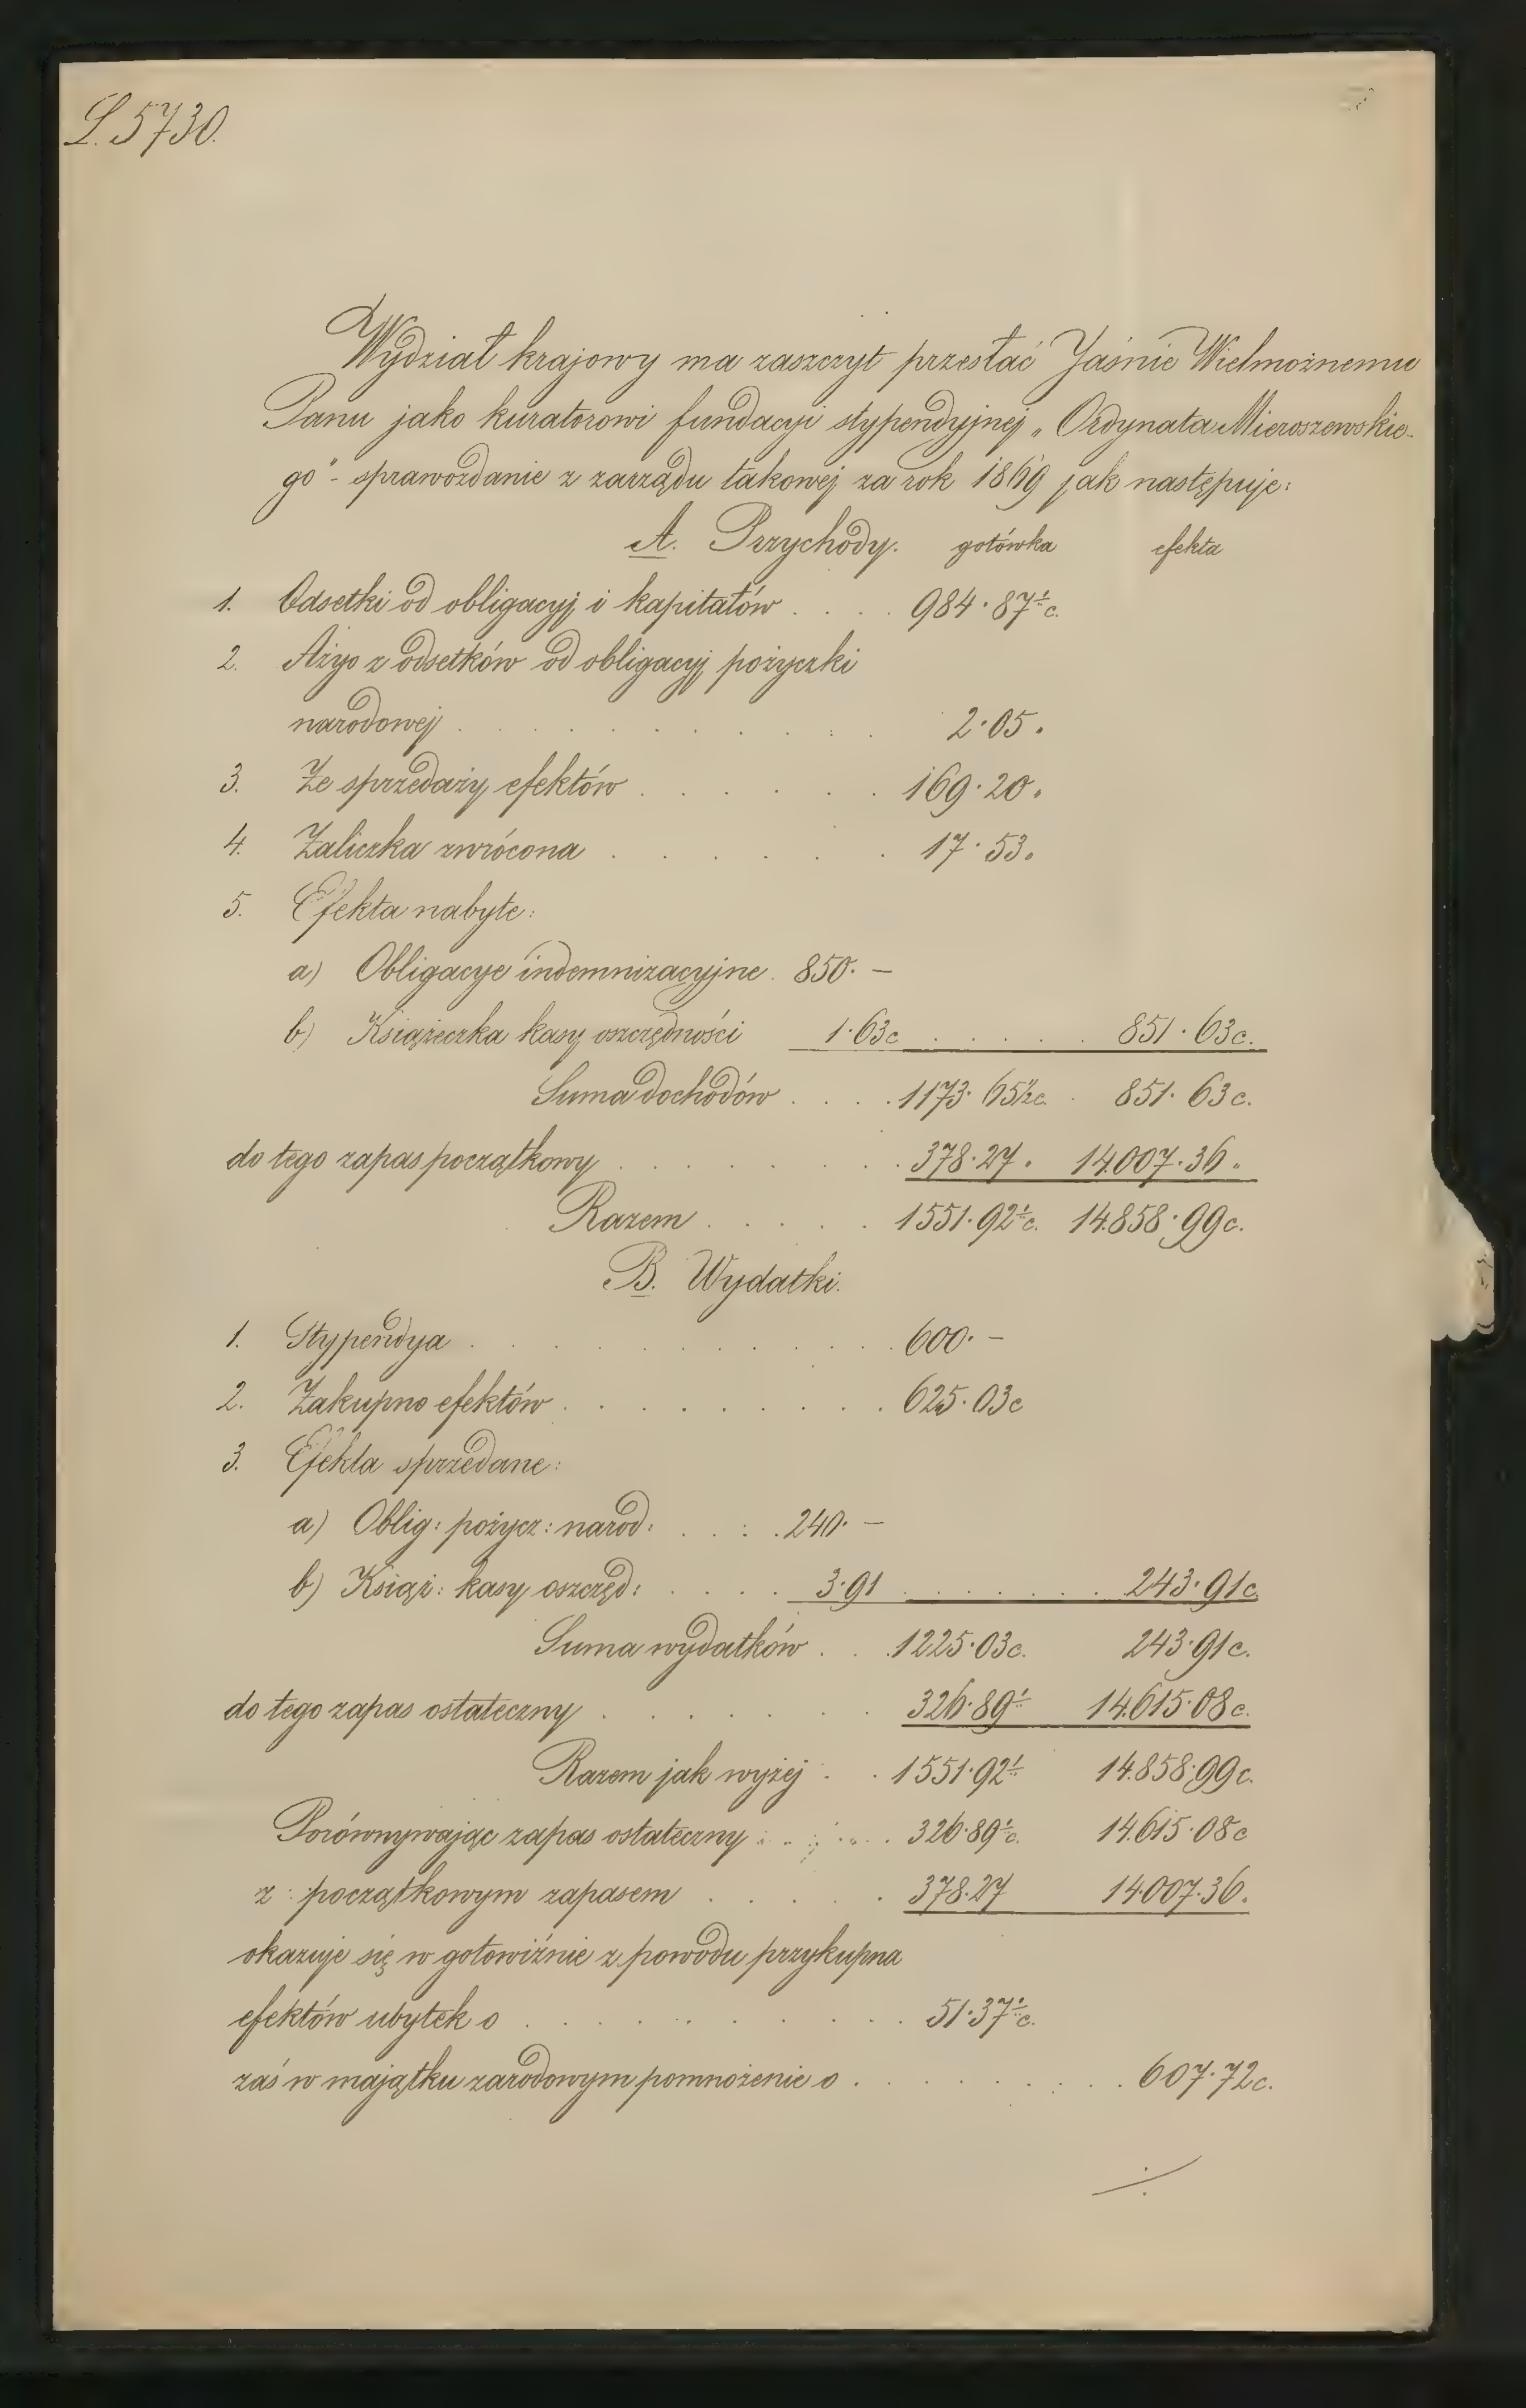 L. 5730.
Wydział krajowy ma zaszczyt przesłać Jaśnie Wielmożnemu
Panu jako kuratorowi fundacyi stypendyjnej „Ordynata Mieroszewskie-
go" - sprawozdanie z zarządu takowej za rok 1869 jak następuje:
A. Przychody. gotówka efekta
1. Odsetki od obligacyj i kapitałów . . . . 984·87½c.
2. Ażyo z odsetków od obligacyj pożyczki
narodowej . . . . . . . . . 2·05.
3. Ze sprzedaży efektów . . . . . . 169·20.
4. Zaliczka zwrócona . . . . . . 17·53.
5. Efekta nabyte:
a) Obligacye indemnizacyjne . 850·—
b) Książeczka kasy oszczędności 1·63c . . . . . 851·63c.
Suma dochodów . . . . 1173·65½c. . 851·63c.
do tego zapas początkowy . . . . . . . . 378·27. 14.007·36.
Razem . . . . . 1551·92½c. 14.858·99c.
B. Wydatki.
1. Stypendya . . . . . . . . . . . 600·—
2. Zakupno efektów . . . . . . . . . 625·03c
3. Efekta sprzedane:
a) Oblig: pożycz: narod: . . : . 240·—
b) Książ: kasy oszczęd: . . . . 3·91 . . . . . . . 243·91c
Suma wydatków . . . 1225·03c. 243·91c.
do tego zapas ostateczny . . . . . . . 326·89½ 14.615·08c.
Razem jak wyżej . . 1551·92½ 14.858·99c.
Porównywając zapas ostateczny . . . . . 326·89½c. 14.615·08c
z początkowym zapasem . . . . . 378·27 14.007·36.
okazuje się w gotowiźnie z powodu przykupna
efektów ubytek o . . . . . . . . . . 51·37½c.
zaś w majątku zarodowym pomnożenie o . . . . . . . . . 607·72c.
./.